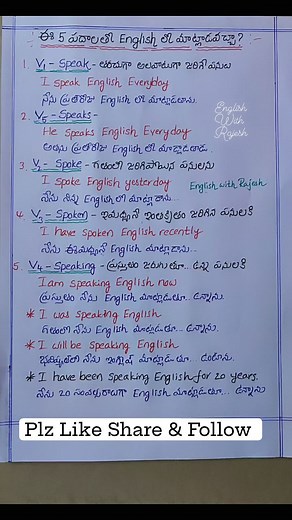 ఈ 5 పదాలతో English లో మాట్లాడవచ్చా?
1. V1 - Speak - తరచుగా అలవాటుగా జరిగే పనులకు
I speak English Everyday
నేను ప్రతిరోజు English లో మాట్లాడుతాను.
2. V5 - Speaks -
He speaks English Everyday
అతను ప్రతిరోజు English లో మాట్లాడతాడు.
English With Rajesh
3. V2 - Spoke - గతంలో జరిగిపోయిన పనులను
I spoke English yesterday
English with Rajesh
నేను నిన్న English లో మాట్లాడాను..
4. V3 - Spoken - ఇమధ్యనే ఇంతక్రితం జరిగిన పనులకి
I have spoken English recently
నేను ఈమధ్యనే English మాట్లాడాను..
5. V4 - Speaking - ప్రస్తుతం జరుగుతూ.. ఉన్న పనులకి
I am speaking English now
ప్రస్తుతం నేను English మాట్లాడుతూ.. ఉన్నాను.
* I was speaking English
గతంలో నేను English మాట్లాడుతూ.. ఉన్నాను.
* I will be speaking English
భవిష్యత్తులో నేను ఇంగ్లీష్ మాట్లాడుతూ.. ఉంటాను.
* I have been speaking English for 20 years.
నేను 20 సంవత్సరాలుగా English మాట్లాడుతూ... ఉన్నాను
Plz Like Share & Follow